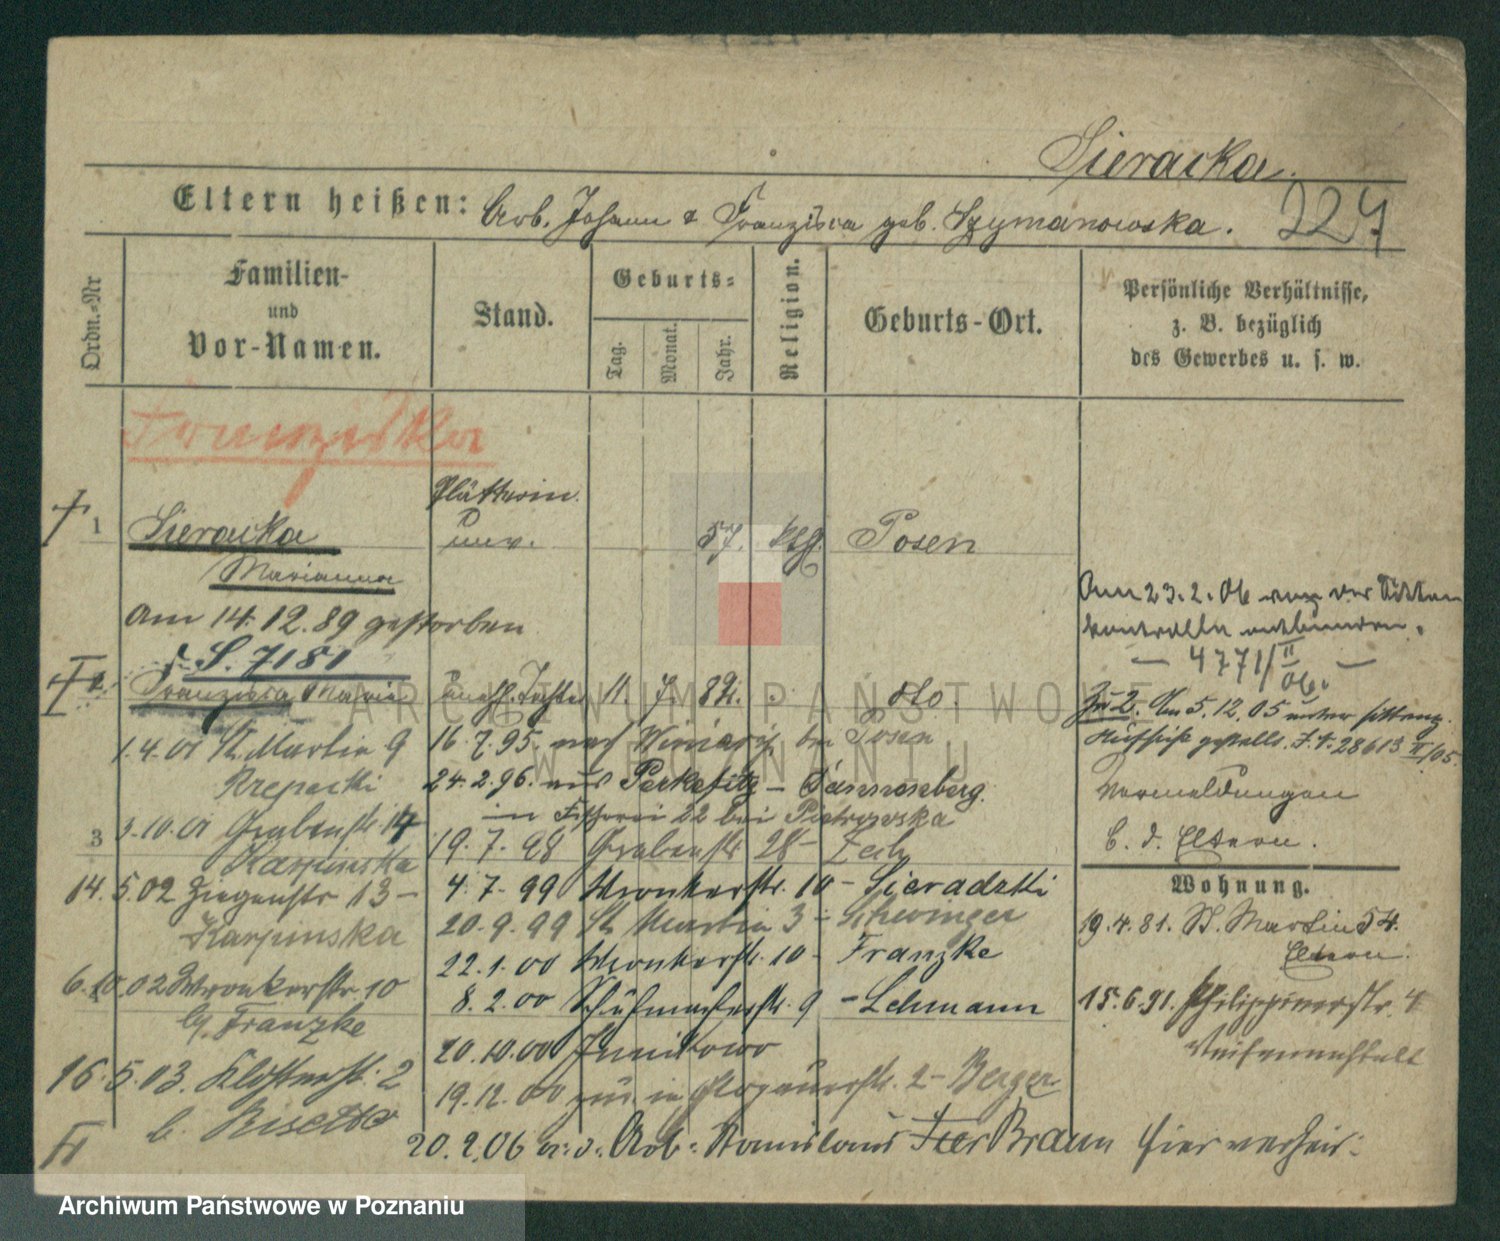 Sieracka.
Eltern heißen: Arb. Johann & Franziska geb. Szymanowska.
227
Ordn.-Nr
Familien-
und
Vor-Namen.
Stand.
Geburts-
Tag.
Monat.
Jahr.
Religion.
Geburts-Ort.
Persönliche Verhältnisse,
z. B. bezüglich
des Gewerbes u. s. w.
Franziska
Plätterin
1 Sieracka unv. 57. ktg. Posen
Marianna
Am 14.12.89 gestorben
S. 7181
2 Franzisca Maria Tochter 11. 7. 82. dto.
Am 23.2.06 aus der Sitten
kontrolle entlassen.
— 4771/II 06. —
Zu 2. Am 5.12.05 unter sittenp.
Aufsicht gestellt. 28613 II/05.
Vermeldungen
b. d. Eltern.
Wohnung.
19.4.81. St. Martin 54.
Eltern.
15.6.91. Philippinerstr. 4
Waisenanstalt
1.4.01 St. Martin 9
Rzepecki
3
3.10.01 Grabenstr. 14
Karpinska
14.5.02 Ziegenstr 13 –
Karpinska
6.10.02 Wronkerstr. 10
b. Franzke
16.5.03. Klosterstr. 2
b.
16.7.95. nach bei Posen
24.2.96. aus –
in Fischerei 22 bei Pietrowska
19.7.98 Grabenstr 28 – Zech
4.7.99 Wronkerstr. 10 – Sieradzki
20.9.99 St. Martin 3 – Schwinger
22.1.00 Wronkerstr. 10 – Franzke
8.2.00 Schuhmacherstr. 9 – Lehmann
20.10.00 Junikowo
19.12.00 zur. in Glogauerstr. 2 – Berger
20.2.06 m. d. Arb. Stanislaus Braun hier verheir.
ARCHIWUM PAŃSTWOWE
W POZNANIU
Archiwum Państwowe w Poznaniu